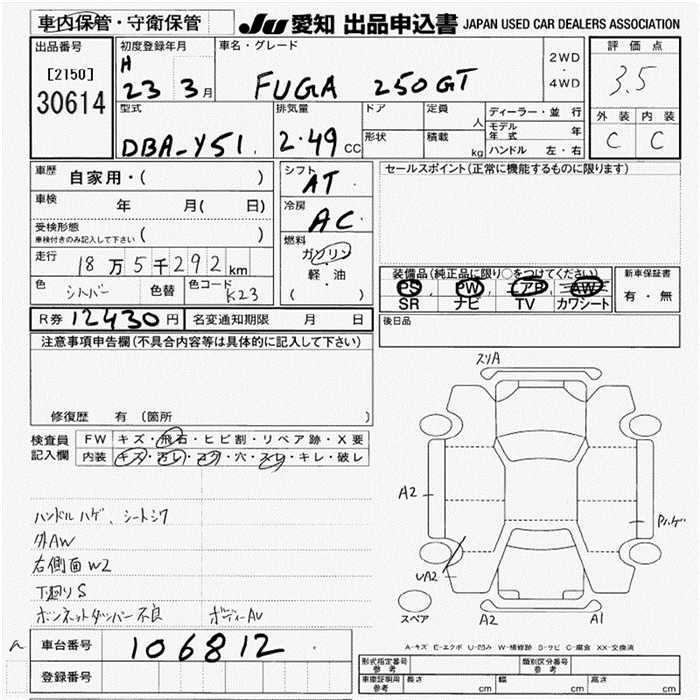 車内保管・守衛保管
JU 愛知 出品申込書 JAPAN USED CAR DEALERS ASSOCIATION
出品番号
[2150]
30614
初度登録年月
H
23 3月
車名・グレード
FUGA 250GT
2WD
・
4WD
評価点
3.5
外装 内装
C C
型式
DBA-Y51
排気量
2.49 CC
ドア
定員 人
形状
積載 kg
ディーラー・並行
モデル年式 年
ハンドル 左・右
車歴 自家用・( )
車検 年 月( 日)
受検形態
車検付きのみ記入して下さい ( )
走行 18万5千292km
色 シルバー 色替 色コード K23
シフト
AT
冷房
AC
燃料
ガソリン
・
軽・油
( )
セールスポイント(正常に機能するものに限ります)
装備品(純正品に限り○をつけてください)
PS PW エアB AW
SR ナビ TV カワシート
新車保証書
有・無
後日品
R券 12430円 名変通知期限 月 日
注意事項申告欄(不具合内容等は具体的に記入して下さい)
修復歴 有 (箇所
検査員記入欄
FW キズ・飛石・ヒビ割・リペア跡・X要
内装 キズ・汚レ・コゲ・穴・スレ・キレ・破レ
ハンドルハゲ、シートシワ
外AW
右側面W2
下廻りS
ボンネットダンパー不良 ボディーAU
スリA
A2
Pハゲ
UA2
スペア
A2 A1
車台番号 106812
登録番号
A-キズ E-エクボ U-凹み W-補修跡 S-サビ C-腐食 XX-交換済
形式指定番号 参考
類別区分番号 参考
車庫証明用 参考 長さ cm 幅 cm 高さ cm